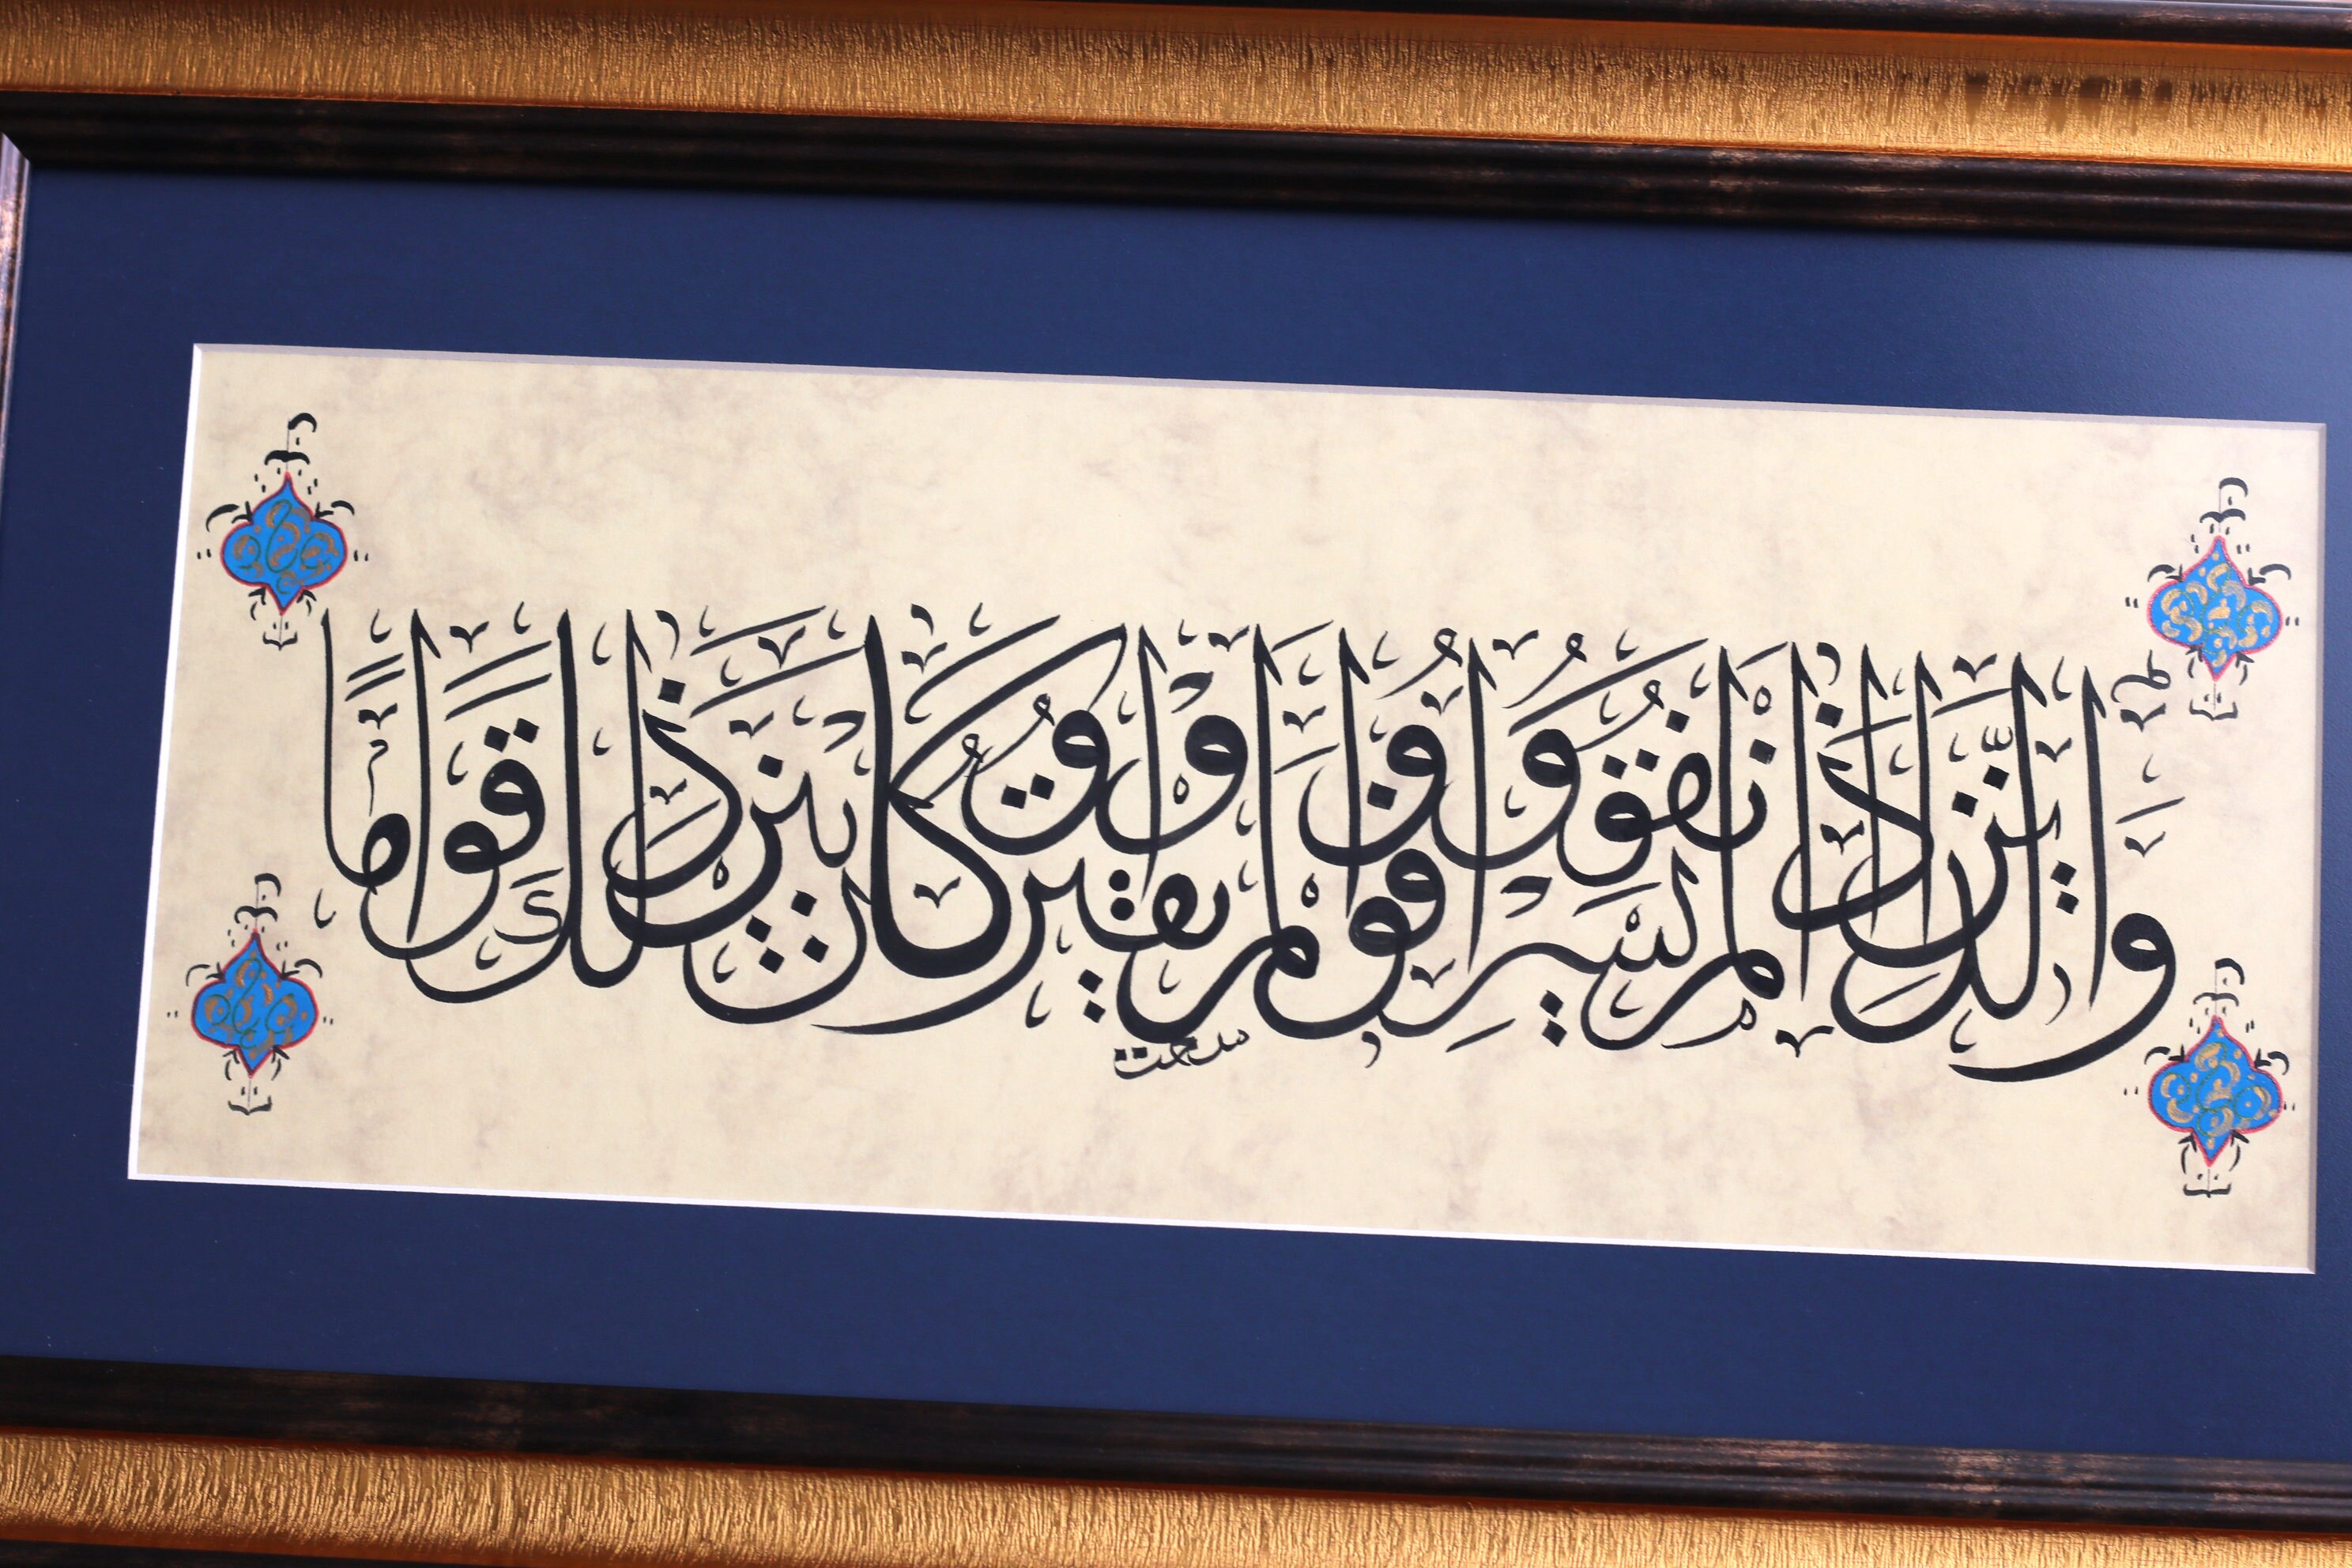 وَالَّذِينَ إِذَا أَنفَقُوا لَمْ يُسْرِفُوا وَلَمْ يَقْتُرُوا وَكَانَ بَيْنَ ذَلِكَ قَوَامًا